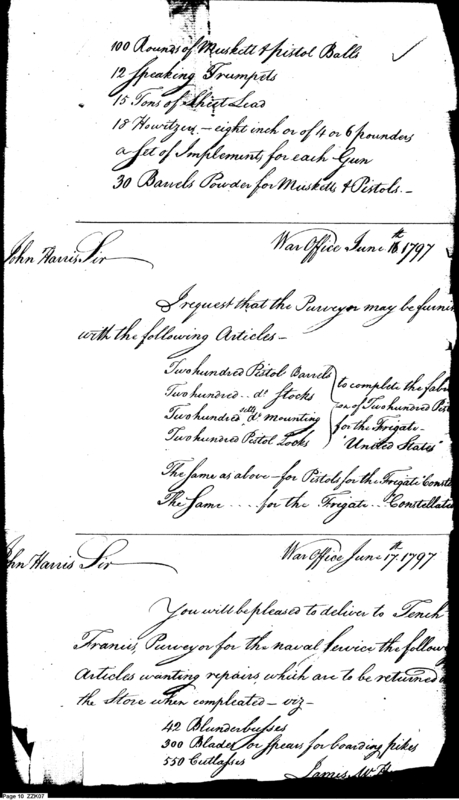 100 Rounds of Muskett & pistol Balls
12 Speaking Trumpets
15 Tons of Sheet Lead
18 Howitzers – eight inch or of 4 or 6 pounders
a set of Implements for each Gun
30 Barrels Powder for Musketts & Pistols –
War Office June 16th 1797
John Harris Sir
I request that the Purveyor may be furni
with the following Articles –
Two hundred Pistol Barrels
Two hundred .. do Stocks
Two hundred setts do Mounting
Two hundred Pistol Locks
to complete the fabri
on of Two hundred Pist
for the Frigate –
"United States"
The same as above – for Pistols for the Frigate Const
The Same .... for the Frigate .. Constellatio
War Office June 17th 1797
John Harris Sir
You will be pleased to deliver to Tench
Francis, Purveyor for the naval Service the follow
Articles wanting repairs which are to be returned
the Store when compleated – viz –
42 Blunderbusses
300 Blades or Spears for boarding pikes
550 Cutlasses
James McH
Page 10 ZZK07